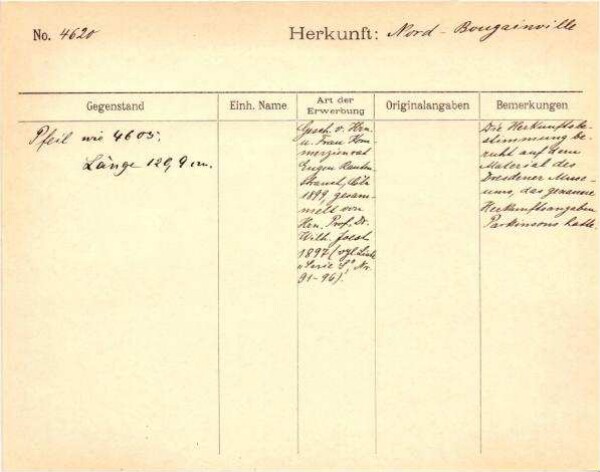 No. 4620
Herkunft: Nord-Bougainville
Gegenstand
Einh. Name
Art der
Erwerbung
Originalangaben
Bemerkungen
Pfeil wie 4605.
Länge 129,9 cm.
Gesch. v. Hrn.
u. Frau Kom-
merzienrat
Eugen Rauten-
strauch, Cöln
1899, gesam-
melt von
Hrn. Prof. Dr.
Wilh. Joest
1897 (vgl. Liste
„Serie S", Nr.
91-96).
Die Herkunftsbe-
stimmung be-
ruht auf dem
Material des
Dresdener Muse-
ums, das genaue
Herkunftsangaben
Parkinsons hatte.